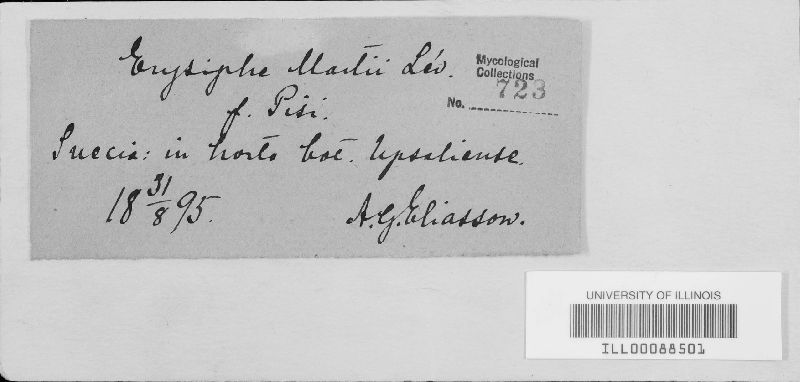 Erysiphe Martii Lév.
f. Pisi.
Suecia: in horto bot. Upsaliense.
18 31/8 95.
A.G. Eliasson.
Mycological
Collections
No. 723
UNIVERSITY OF ILLINOIS
ILL00088501